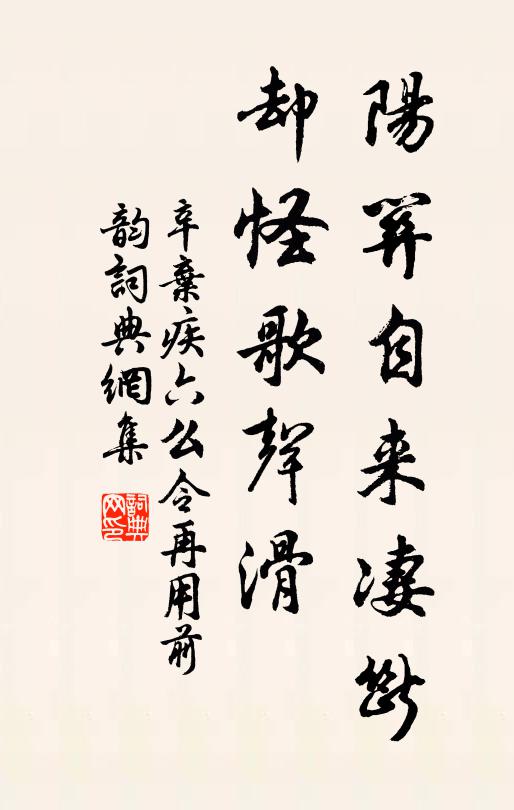 陽關自来凄斷
却怪歌聲滑
辛棄疾六么令再用前
韵詞典網集
詞典
网印